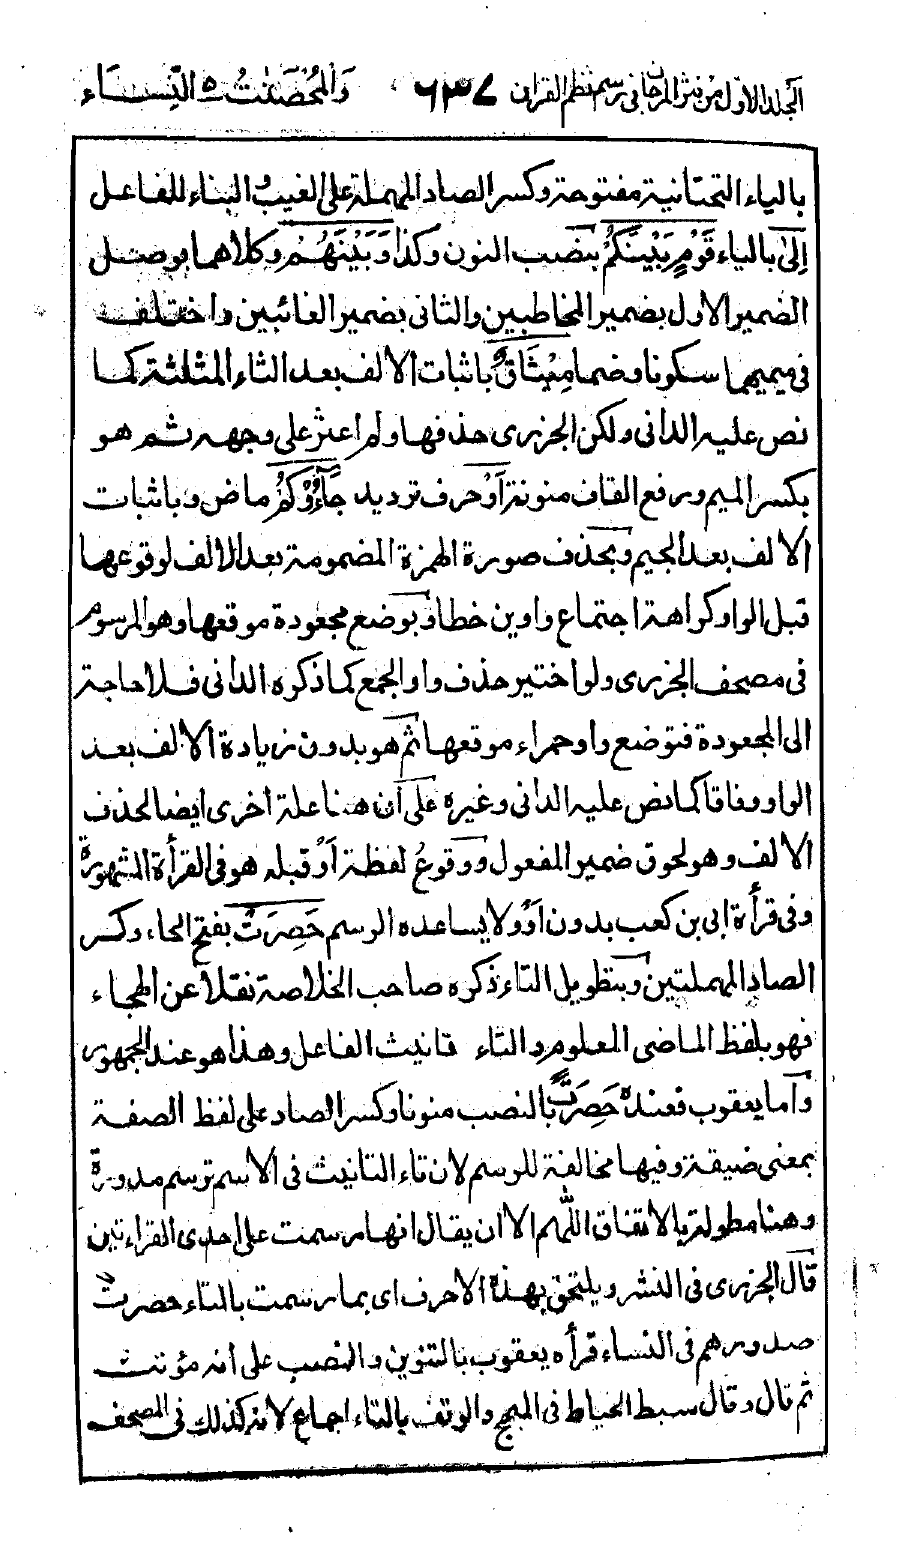 الجلد الاول من نثر المرجان في رسم نظم القران ٦٣٧ وَالْمُحْصَنٰتُ ٥ النِّسَاء
بالياء التحتانية مفتوحة وكسر الصاد المهملة على الغيب والبناء للفاعل
اِلىٰ بالياء قَوْمٍ بَيْنَكُمْ بنصب النون وكذا وَبَيْنَهُمْ وكلاهما بوصل
الضمير الاول بضمير المخاطبين والثانى بضمير الغائبين واختلف
فى ميميهما سكونا وضما مِيْثَاقٌ باثبات الالف بعد الثاء المثلثة كما
نص عليه الدانى ولكن الجزرى حذفها ولم اعثر على وجهه ثم هو
بكسر الميم ورفع القاف منونة اَوْ حرف ترديد جَآءُوْكُمْ ماض وباثبات
الالف بعد الجيم وبحذف صورة الهمزة المضمومة بعد الالف لوقوعها
قبل الواو كراهة اجتماع واوين خطا وبوضع مجعودة موقعها وهو المرسوم
فى مصحف الجزرى ولو اختير حذف واو الجمع كما ذكره الدانى فلا حاجة
الى المجعودة فتوضع واو حمراء موقعها ثم هو بدون زيادة الالف بعد
الواو وفاقا كما نص عليه الدانى وغيره على أن هنا علة أخرى ايضا لحذف
الالف وهو لحوق ضمير المفعول ووقوعُ لفظة اَوْ قبله هو فى القرأة المشهورة
وفى قرأة ابى بن كعب بدون اَوْ ولا يساعده الرسم حَصِرَتْ بفتح الحاء وكسر
الصاد المهملتين وبتطويل التاء ذكره صاحب الخلاصة نقلا عن الهجاء
فهو بلفظ الماضى المعلوم والتاء تانيث الفاعل وهذا هو عند الجمهور
وأما يعقوب فعنده حَصِرَتً بالنصب منونا وكسر الصاد على لفظ الصفة
بمعنى ضيقة وفيها مخالفة للرسم لان تاء التانيث فى الاسم ترسم مدورة
وهنا مطولة بالاتفاق اللّٰهم الا ان يقال انها رسمت على احدى القراءتين
قال الجزرى فى النشر ويلتحق بهذه الاحرف اى بما رسمت بالتاء حصرت
صدورهم فى النساء قرأه يعقوب بالتنوين والنصب على أنه مؤنث
ثم قال وقال سبط الخياط فى المبهج والوقف بالتاء اجماع لانه كذلك فى المصحف